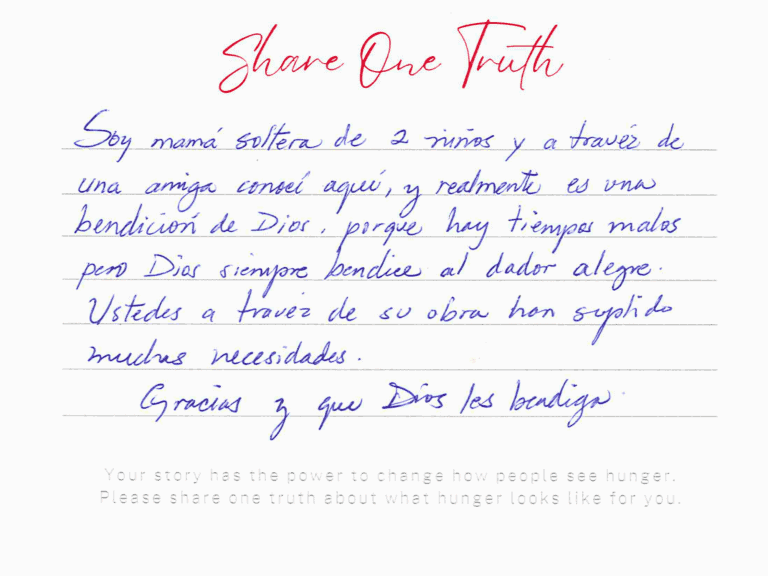 Share One Truth
Soy mamá soltera de 2 niños y a travéz de
una amiga conocí aquí, y realmente es una
bendición de Dios, porque hay tiempos malos
pero Dios siempre bendice al dador alegre.
Ustedes a travez de su obra han suplido
muchas necesidades.
Gracias y que Dios les bendiga.
Your story has the power to change how people see hunger.
Please share one truth about what hunger looks like for you.